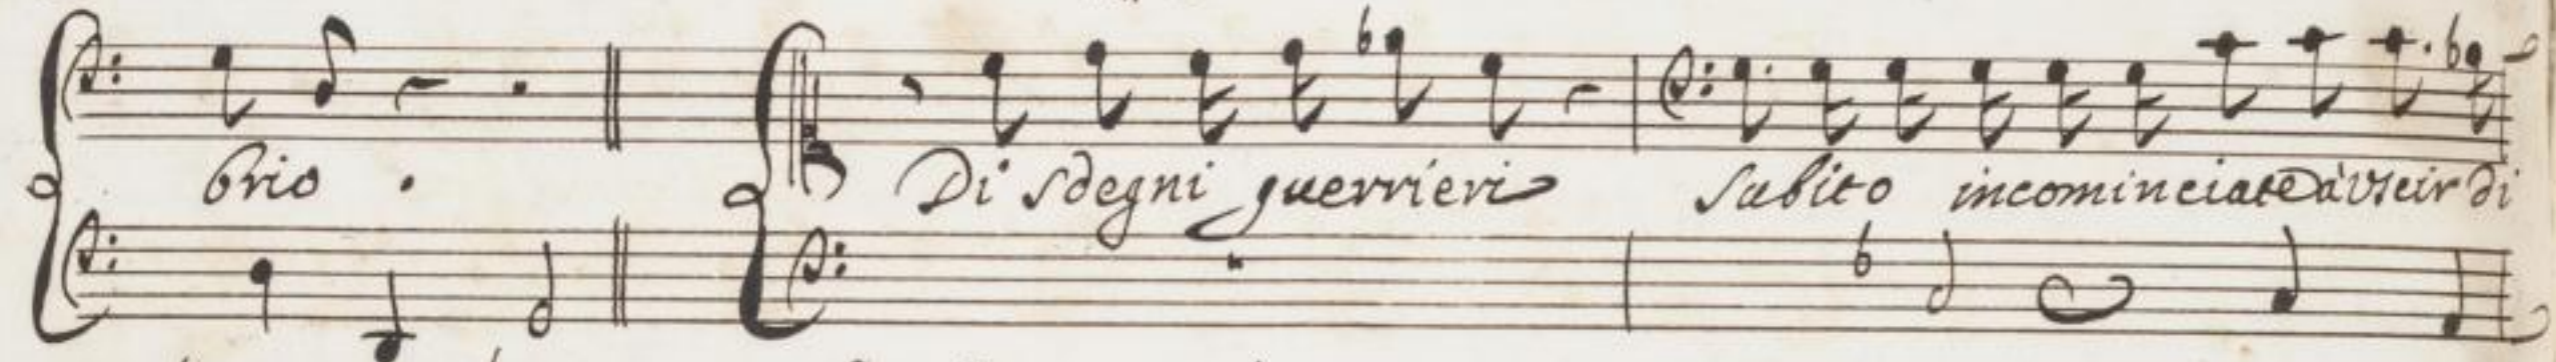 brio. Di sdegni guerrieri Subito incominciate à uscir di